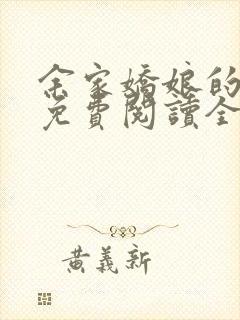 余家嬌娘的
免費閱讀全
黃義新